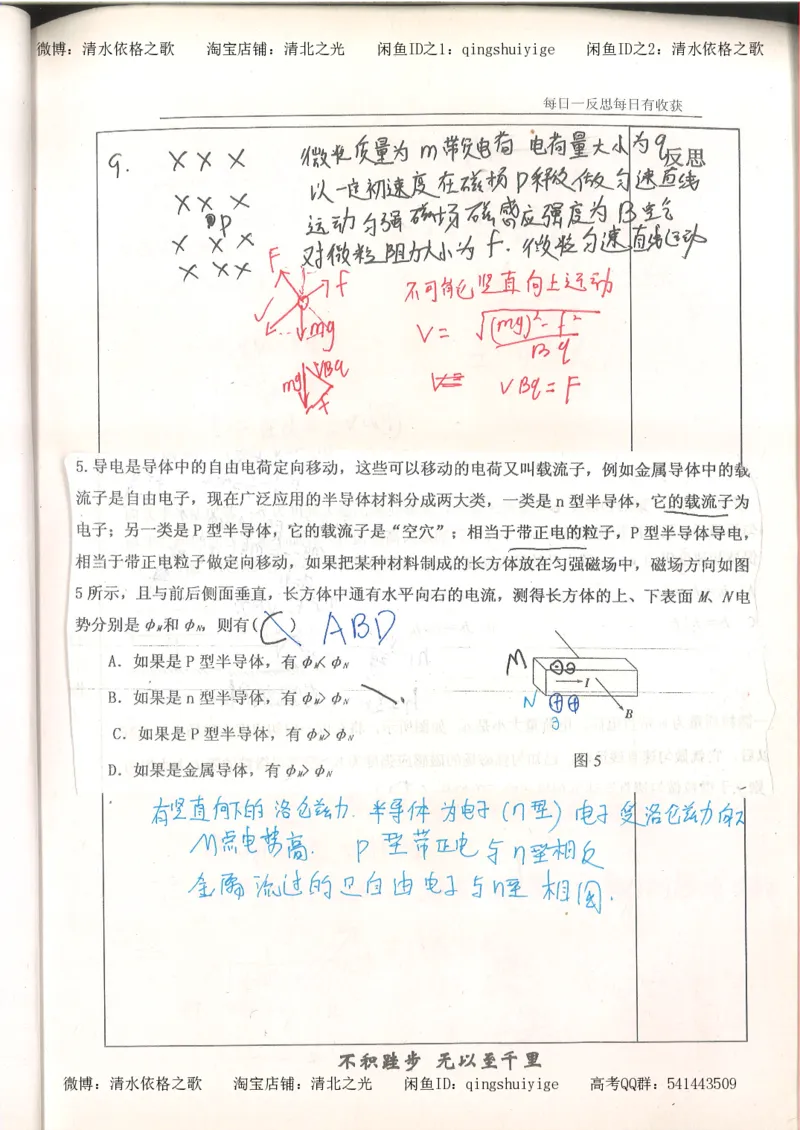 微博：清水依格之歌 淘宝店铺：清北之光 闲鱼ID之1：qingshuiyige 闲鱼ID之2：清水依格之歌
每日一反思每日有收获
9. 微粒质量为m带负电荷 电荷量大小为q 反思
以一定初速度在磁场P释放做匀速直线
P
运动匀强磁场磁感应强度为B空气
对微粒阻力大小为f. 微粒匀速直线运动
F f
mg
不可能竖直向上运动
V = √(mg)²-f² / Bq
mg VBq f
VBq = F
5.导电是导体中的自由电荷定向移动，这些可以移动的电荷又叫载流子，例如金属导体中的载
流子是自由电子，现在广泛应用的半导体材料分成两大类，一类是n型半导体，它的载流子为
电子；另一类是P型半导体，它的载流子是“空穴”；相当于带正电的粒子，P型半导体导电，
相当于带正电粒子做定向移动，如果把某种材料制成的长方体放在匀强磁场中，磁场方向如图
5所示，且与前后侧面垂直，长方体中通有水平向右的电流，测得长方体的上、下表面M、N电
势分别是φM和φN，则有( C ) ABD
A．如果是P型半导体，有φM<φN
B．如果是n型半导体，有φM>φN
C．如果是P型半导体，有φM>φN
D．如果是金属导体，有φM>φN
M
I
N
B
图5
有竖直向下的洛仑兹力. 半导体为电子(n型) 电子受洛仑兹力向下
M点电势高. P型带正电与n型相反
金属流过的只自由电子与n型相同.
不积跬步 无以至千里
微博：清水依格之歌 淘宝店铺：清北之光 闲鱼ID：qingshuiyige 高考QQ群：541443509